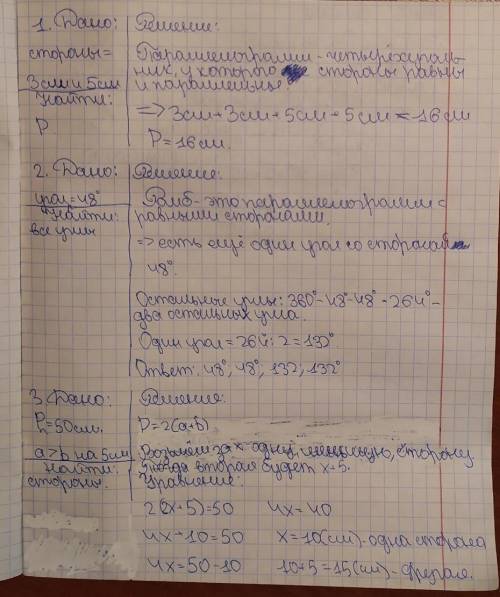 1. Дано:
Решение:
стороны=
3см и 5см
Найти:
P
Параллелограмм - четырёхуголь-
ник, у которого стороны равны
и параллельны
=> 3см+3см+5см+5см=16см
P=16см.
2. Дано:
Решение:
угол=48°
Найти:
все углы
Ромб - это параллелограмм с
равными сторонами.
=> есть ещё один угол со сторонами
48°.
Остальные углы: 360°-48°-48°=264°-
два остальных угла.
Один угол=264:2=132°
Ответ: 48°, 48°, 132, 132°
3 Дано:
Решение:
P=50см.
a>b на 5см
Найти:
стороны.
P=2(a+b)
Возьмём за x одну, меньшую, сторону
Тогда вторая будет x+5.
Уравнение:
2(2x+5)=50 4x=40
4x+10=50 x=10(см)-одна сторона
4x=50-10 10+5=15(см)-другая.